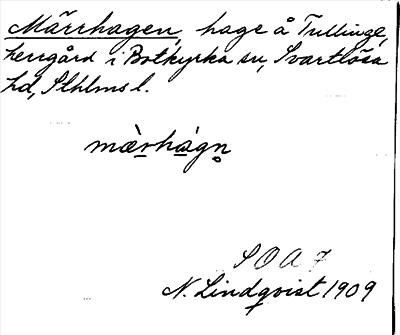 Märrhagen, hage å Tullinge,
herrgård i Botkyrka sn, Svartlösa
hd, Sthlms l.
mæ̀rhágn̥
SOA 7
N. Lindqvist 1909